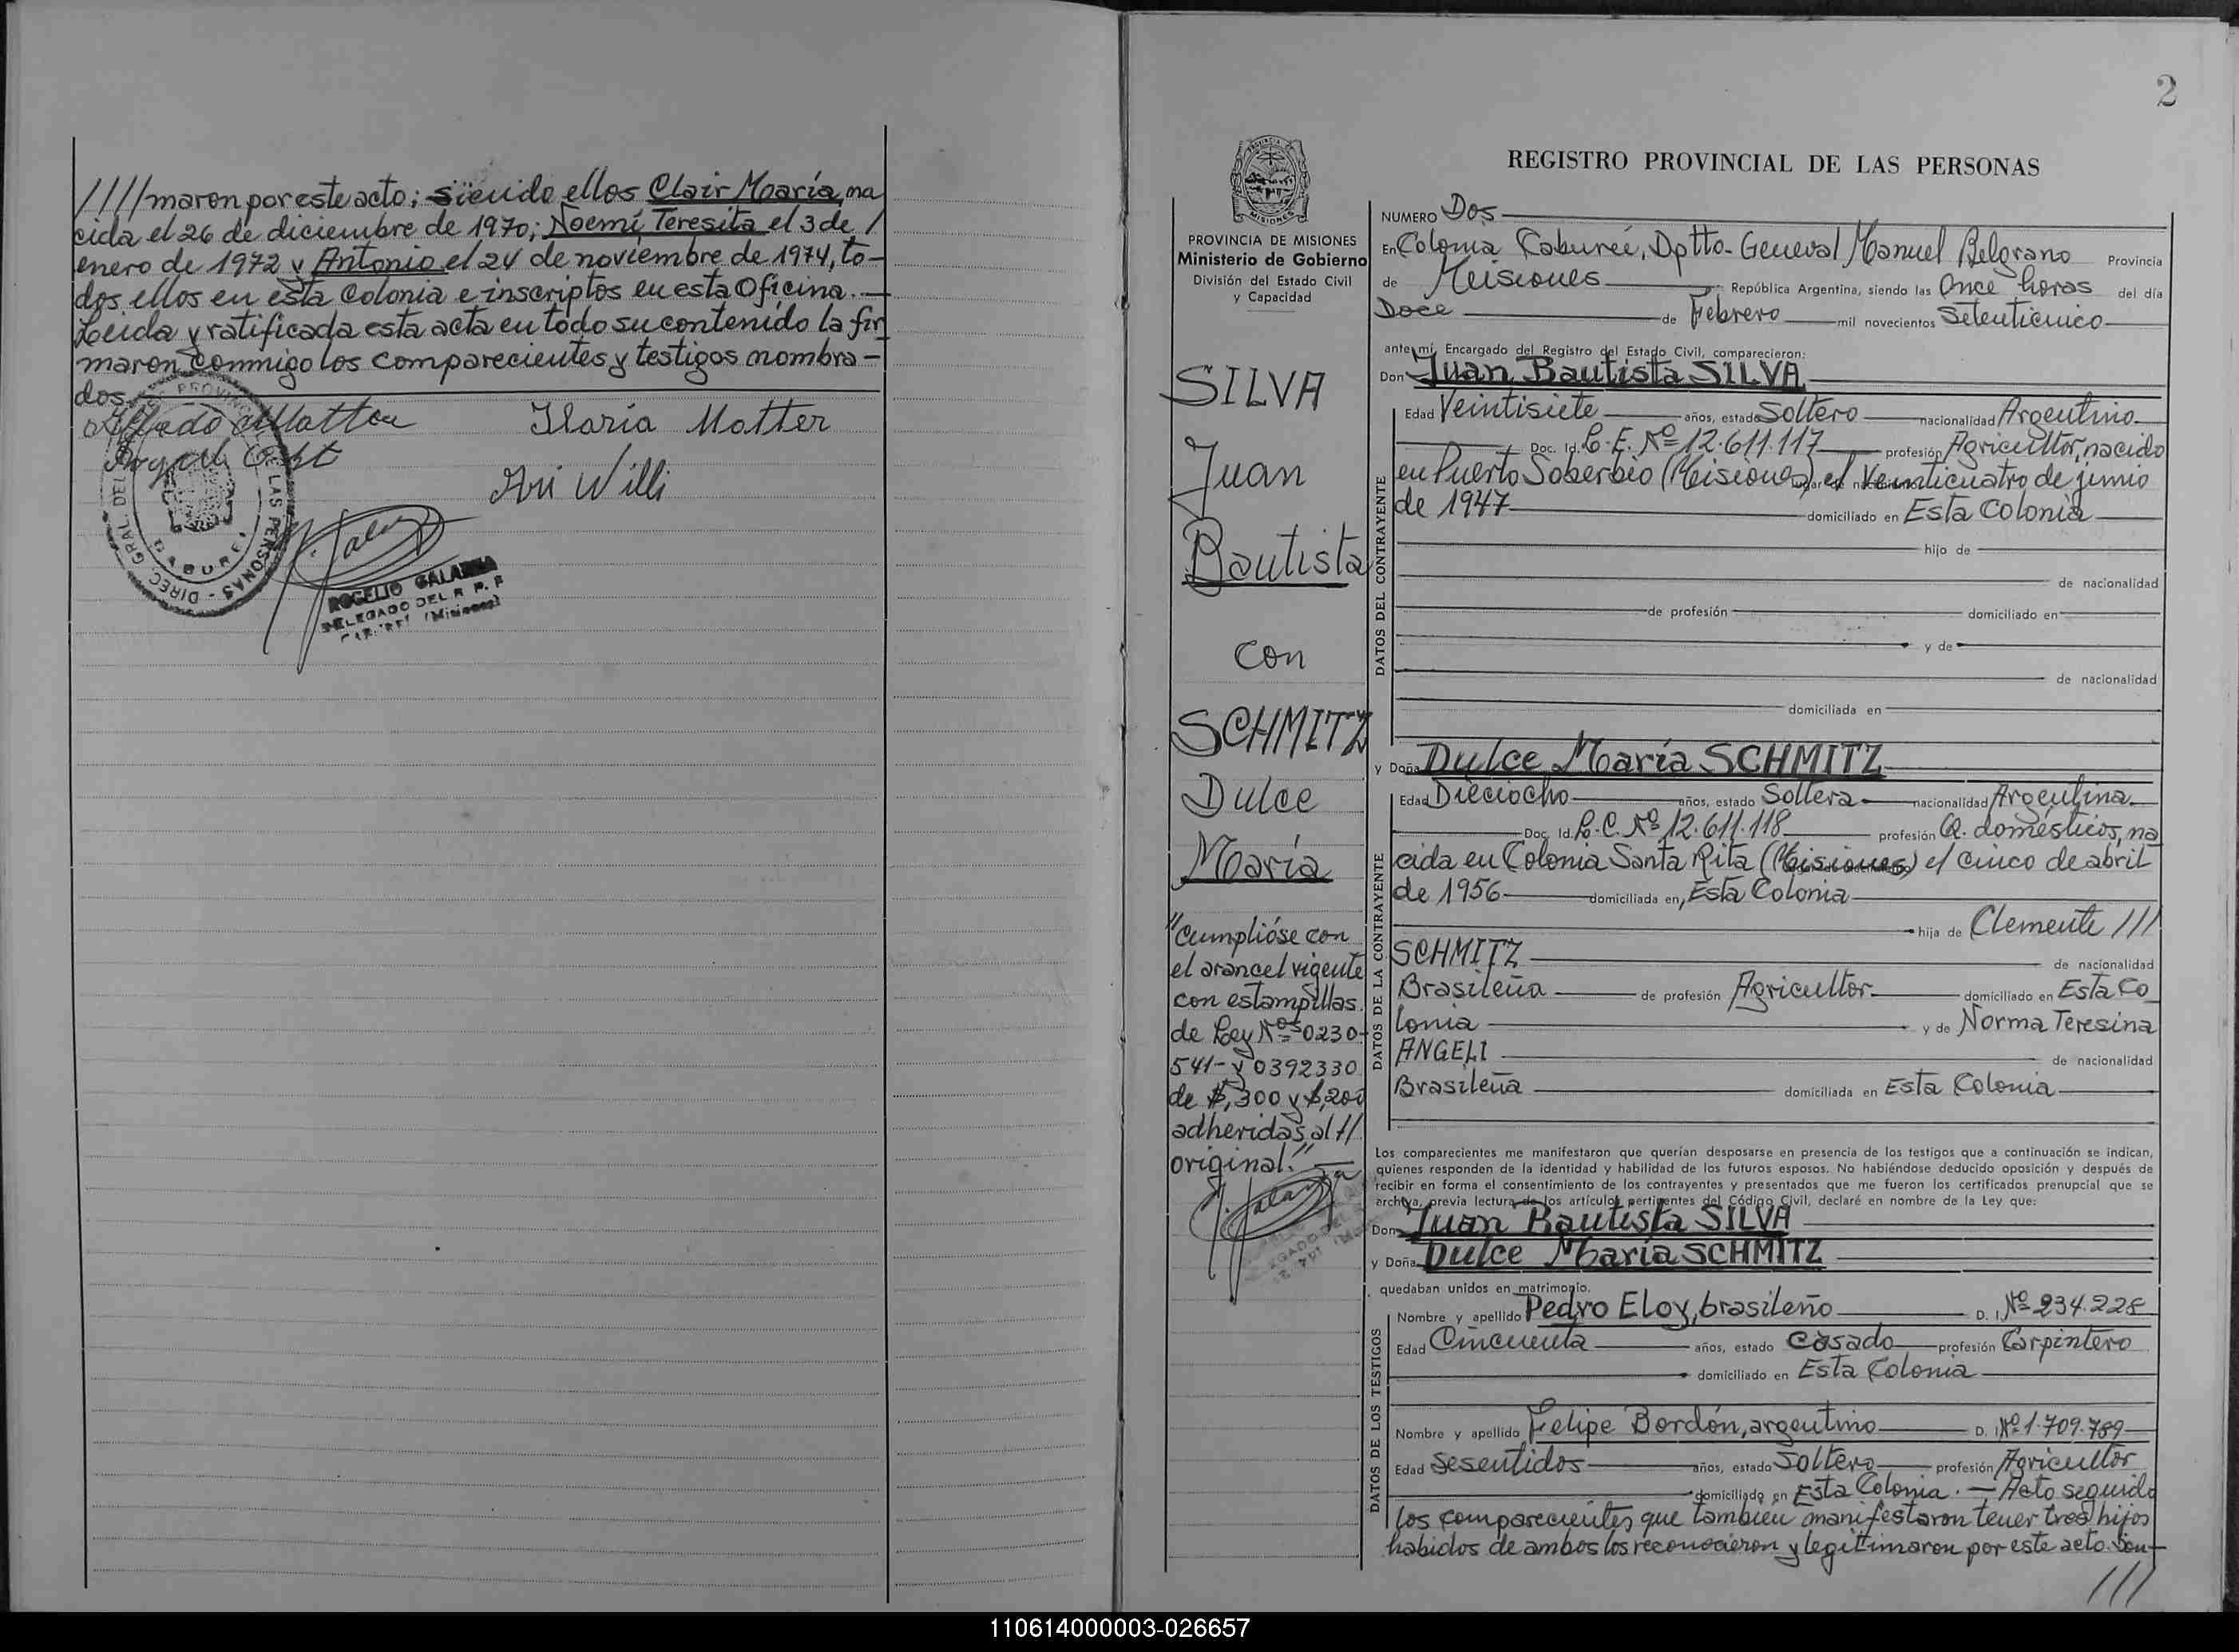 ////maron por este acto; siendo ellos Clair María, na
cida el 26 de diciembre de 1970; Noemí Teresita el 3 de /
enero de 1972 y Antonio el 24 de noviembre de 1974, to-
dos ellos en esta Colonia e inscriptos en esta Oficina.—
Leida y ratificada esta acta en todo su contenido la fir
maron conmigo los comparecientes y testigos nombra-
dos.
Ilaria Motter
Willi
DIREC. GRAL. DEL PROVIN LAS PERSONAS
CABUREI
ROGELIO GALARZA
DELEGADO DEL R. P. P
(Misiones)
2
MISIONES
PROVINCIA DE MISIONES
Ministerio de Gobierno
División del Estado Civil
y Capacidad
SILVA
Juan
Bautista
con
SCHMITZ
Dulce
María
"Cumplióse con
el arancel vigente
con estampillas
de Ley Nºs 0230-
541- y 0392330
de $,300 y $,200
adheridas al //
original."—
REGISTRO PROVINCIAL DE LAS PERSONAS
NUMERO Dos
En Colonia Caburéi, Dptto. General Manuel Belgrano Provincia
de Misiones República Argentina, siendo las Once horas del día
Doce de Febrero mil novecientos Setenticinco
ante mí, Encargado del Registro del Estado Civil, comparecieron:
Don Juan Bautista SILVA
DATOS DEL CONTRAYENTE
Edad Veintisiete años, estado Soltero nacionalidad Argentino
Doc. Id. L.E. Nº 12.611.117 profesión Agricultor, nacido
en Puerto Soberbio (Misiones) el Veinticuatro de junio
de 1947 domiciliado en Esta Colonia
hijo de
de nacionalidad
de profesión domiciliado en
y de
de nacionalidad
domiciliada en
y Doña Dulce María SCHMITZ
DATOS DE LA CONTRAYENTE
Edad Dieciocho años, estado Soltera nacionalidad Argentina
Doc. Id. L.C. Nº 12.611.118 profesión Q. domésticos, na
cida en Colonia Santa Rita (Misiones) el cinco de abril
de 1956 domiciliada en, Esta Colonia
hija de Clemente ///
SCHMITZ de nacionalidad
Brasileña de profesión Agricultor domiciliado en Esta Co
lonia y de Norma Teresina
ANGELI de nacionalidad
Brasileña domiciliada en Esta Colonia
Los comparecientes me manifestaron que querían desposarse en presencia de los testigos que a continuación se indican,
quienes responden de la identidad y habilidad de los futuros esposos. No habiéndose deducido oposición y después de
recibir en forma el consentimiento de los contrayentes y presentados que me fueron los certificados prenupcial que se
archiva, previa lectura de los artículos pertinentes del Código Civil, declaré en nombre de la Ley que:
Don Juan Bautista SILVA
y Doña Dulce María SCHMITZ
quedaban unidos en matrimonio.
DATOS DE LOS TESTIGOS
Nombre y apellido Pedro Eloy, brasileño D. I. Nº 234.228
Edad Cincuenta años, estado Casado profesión Carpintero
domiciliado en Esta Colonia
Nombre y apellido Felipe Bordón, argentino D. I. Nº 1.709.789
Edad Sesentidos años, estado Soltero profesión Agricultor
domiciliado en Esta Colonia.— Acto seguido
los comparecientes que también manifestaron tener tres hijos
habidos de ambos los reconocieron y legitimaron por este acto. Son-
///
110614000003-026657